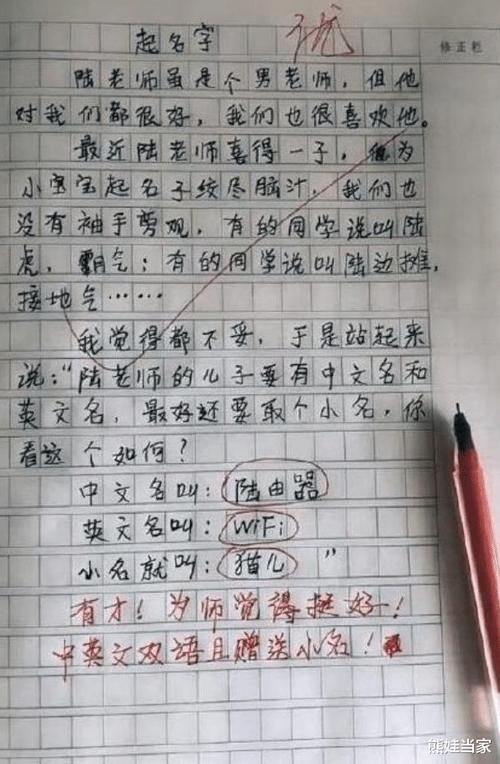 起名字
修正栏
陆老师虽是个男老师，但他
对我们都很好，我们也很喜欢他。
最近陆老师喜得一子，他为
小宝宝起名子绞尽脑汁，我们也
没有袖手剪观，有的同学说叫陆
虎，霸气；有的同学说叫陆边摊，
接地气……
我觉得都不妥，于是站起来
说：“陆老师的儿子要有中文名和
英文名，最好还要取个小名，你
看这个如何？
中文名叫：陆由器
英文名叫：WiFi
小名就叫：猫儿”
有才！为师觉得挺好！
中英文双语且赠送小名！
熊娃当家